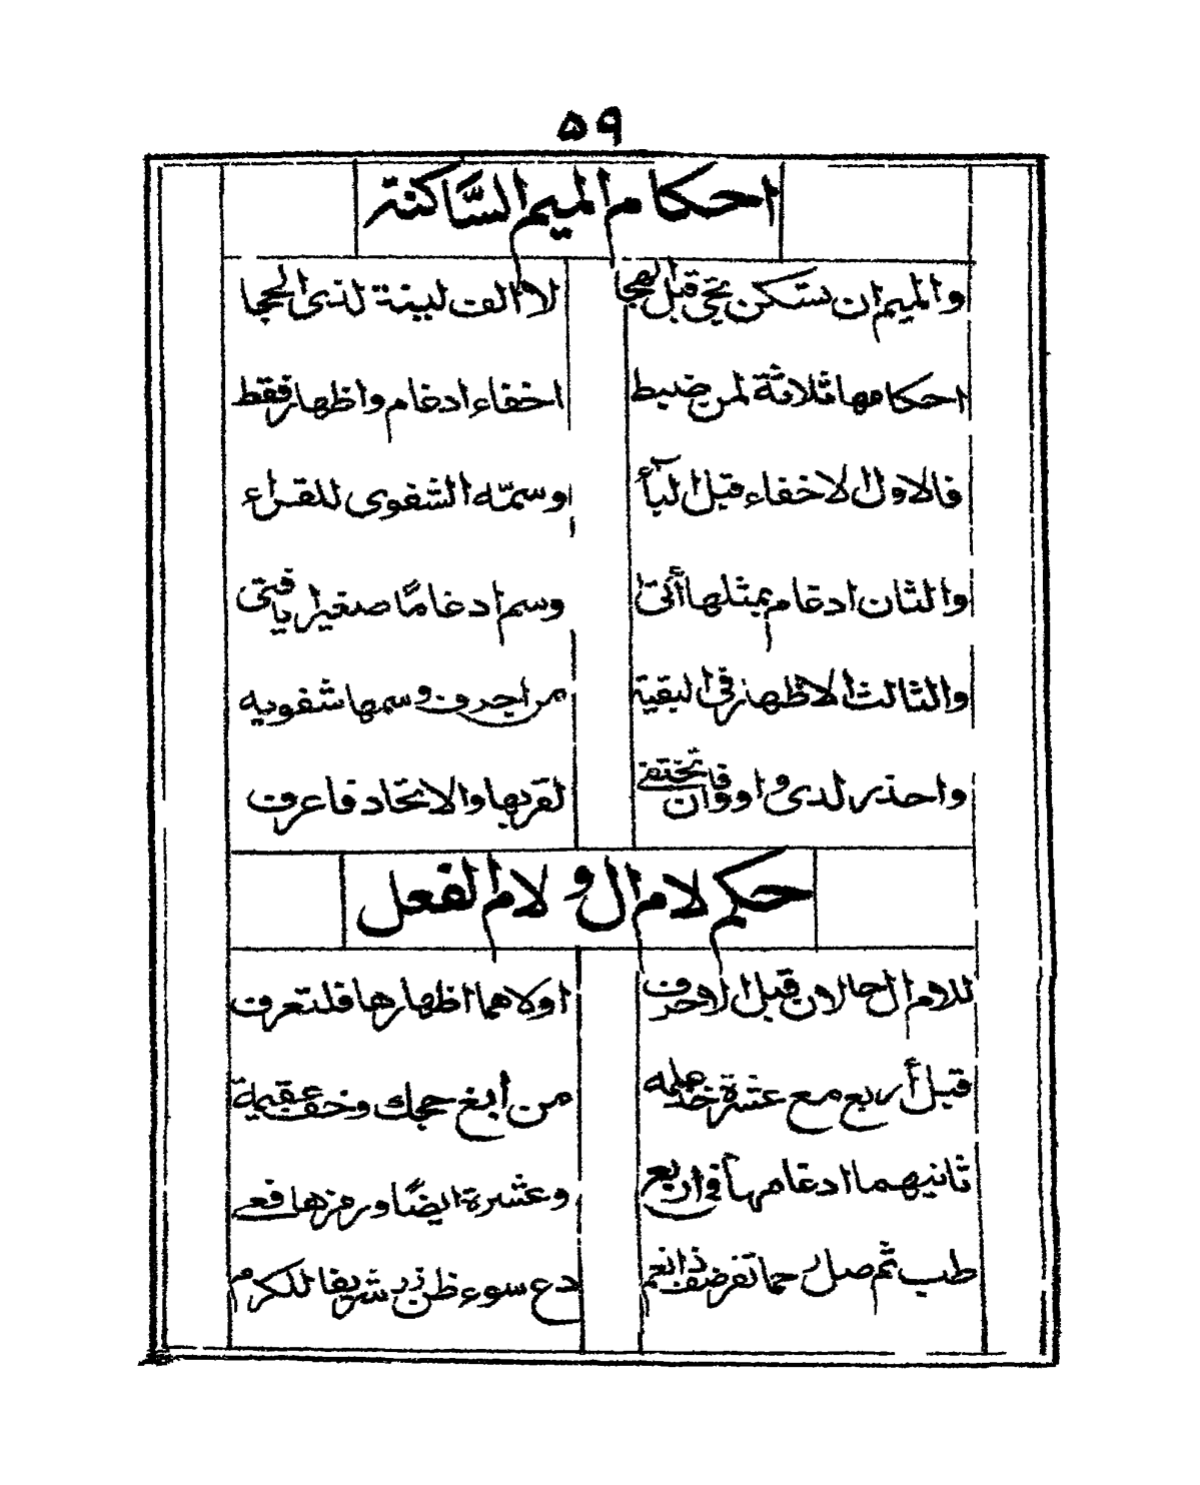 ٥٩
احكام الميم السَّاكنة
والميم ان تسكن تجي قبل الهجا لا الف لينة لذى الحجا
احكامها ثلاثة لمن ضبط اخفاء ادغام واظهار فقط
فالاول الاخفاء قبل البآء وسمّه الشفوى للقراء
والثان ادغام بمثلها أتى وسم ادغامًا صغيرا يا فتى
والثالث الاظهار فى البقية من احرف وسمها شفويه
واحذر لدى واو وفا ان تختفى لقربها والاتحاد فاعرف
حكم لام ال ولام الفعل
للام ال حالان قبل الاحرف اولاهما اظهارها فلتعرف
قبل أربع مع عشرة خذ علمه من أبغ حجك وخف عقيمة
ثانيهما ادغامها فى اربع وعشرة ايضًا ورمزها فعى
طب ثم صل رحما تفز ضف ذا نعم دع سوء ظن زر شريفا للكرم